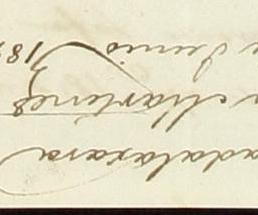 adalaxara
Martinez
e Junio 18